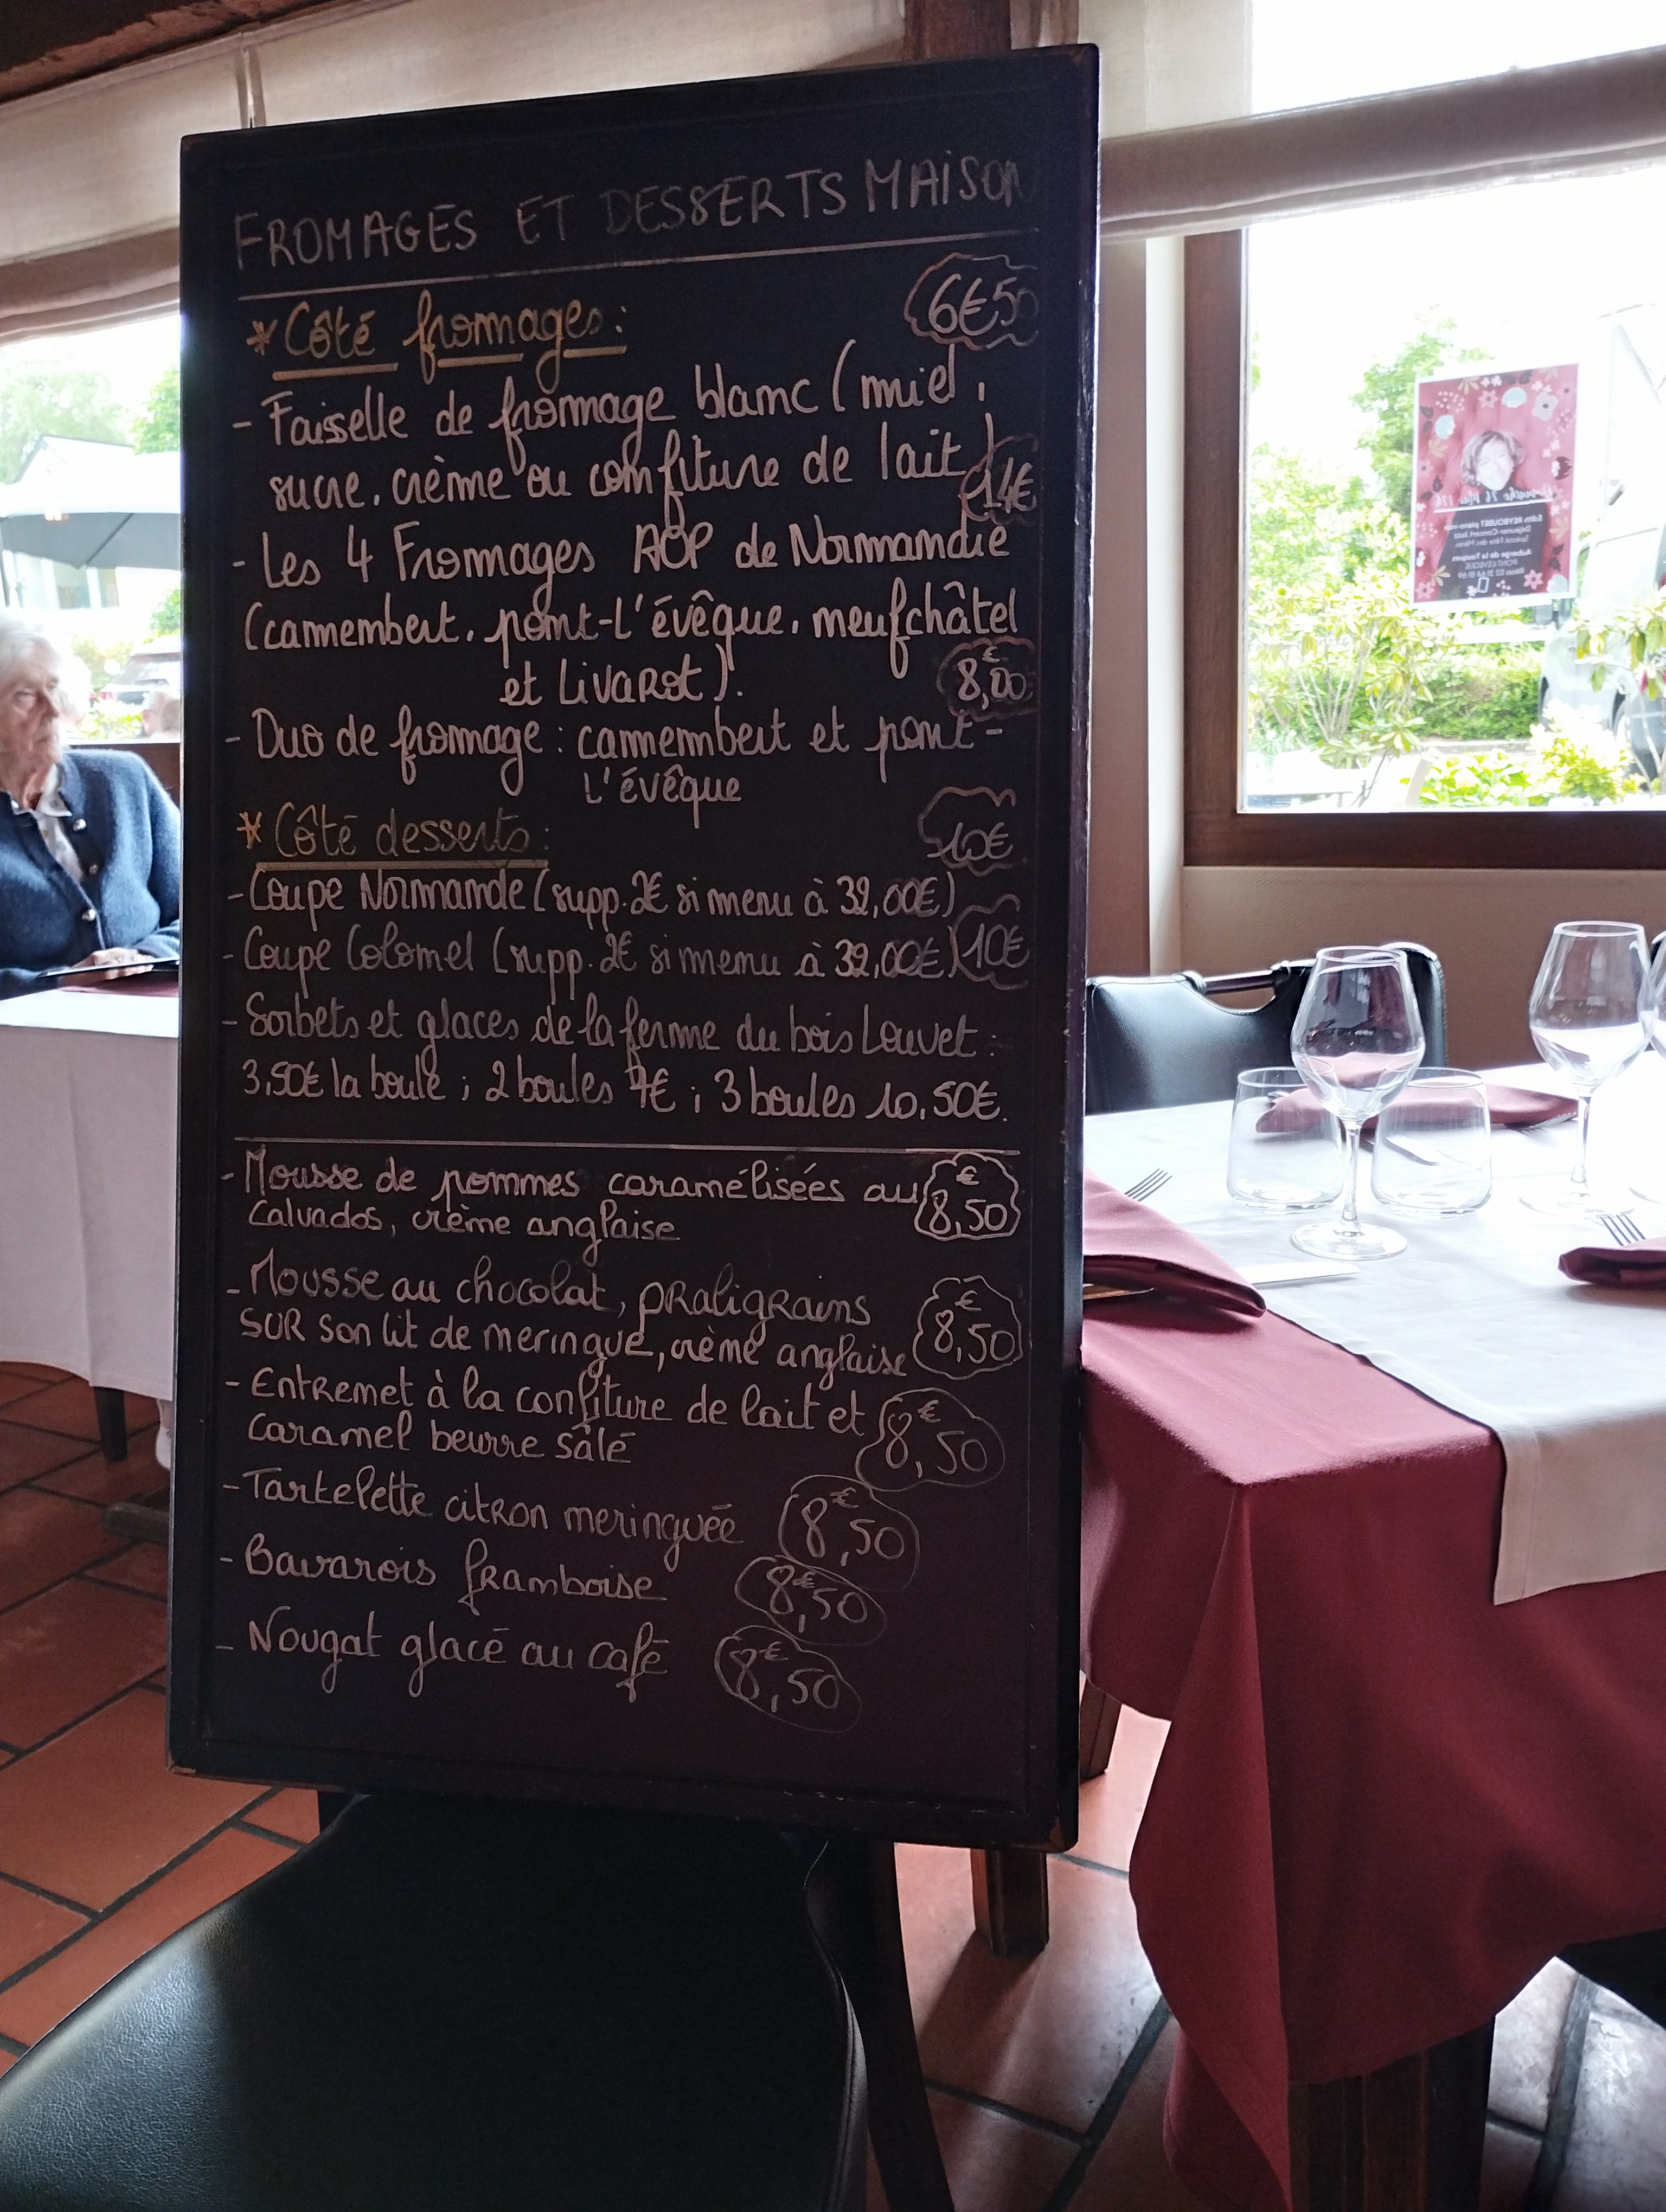 FROMAGES ET DESSERTS MAISON
* Côté fromages : 6€50
- Faisselle de fromage blanc (miel,
sucre, crème ou confiture de lait) 14€
- Les 4 Fromages AOP de Normandie
(camembert, pont-l'évêque, neufchâtel
et Livarot). 8,00€
- Duo de fromage : camembert et pont-
l'évêque
* Côté desserts : 10€
- Coupe Normande (supp. 2€ si menu à 32,00€)
- Coupe Colonel (supp. 2€ si menu à 32,00€) 10€
- Sorbets et glaces de la ferme du bois Louvet :
3,50€ la boule ; 2 boules 7€ ; 3 boules 10,50€.
- Mousse de pommes caramélisées au 8,50€
Calvados, crème anglaise
- Mousse au chocolat, pRaligRains
SUR son lit de meringue, crème anglaise 8,50€
- EntRemet à la confiture de lait et 8,50€
caramel beurre sâlé
- Tartelette citRon meringuée 8,50€
- Bavarois fRamboise 8,50€
- Nougat glacé au café 8,50€
Edith REYBOUBET piano-voix
Déjeuner-Concert Jazz
Spécial Fête des Mères
Auberge de La Touques
PONT-L'EVEQUE
Résas 02 31 64 01 69